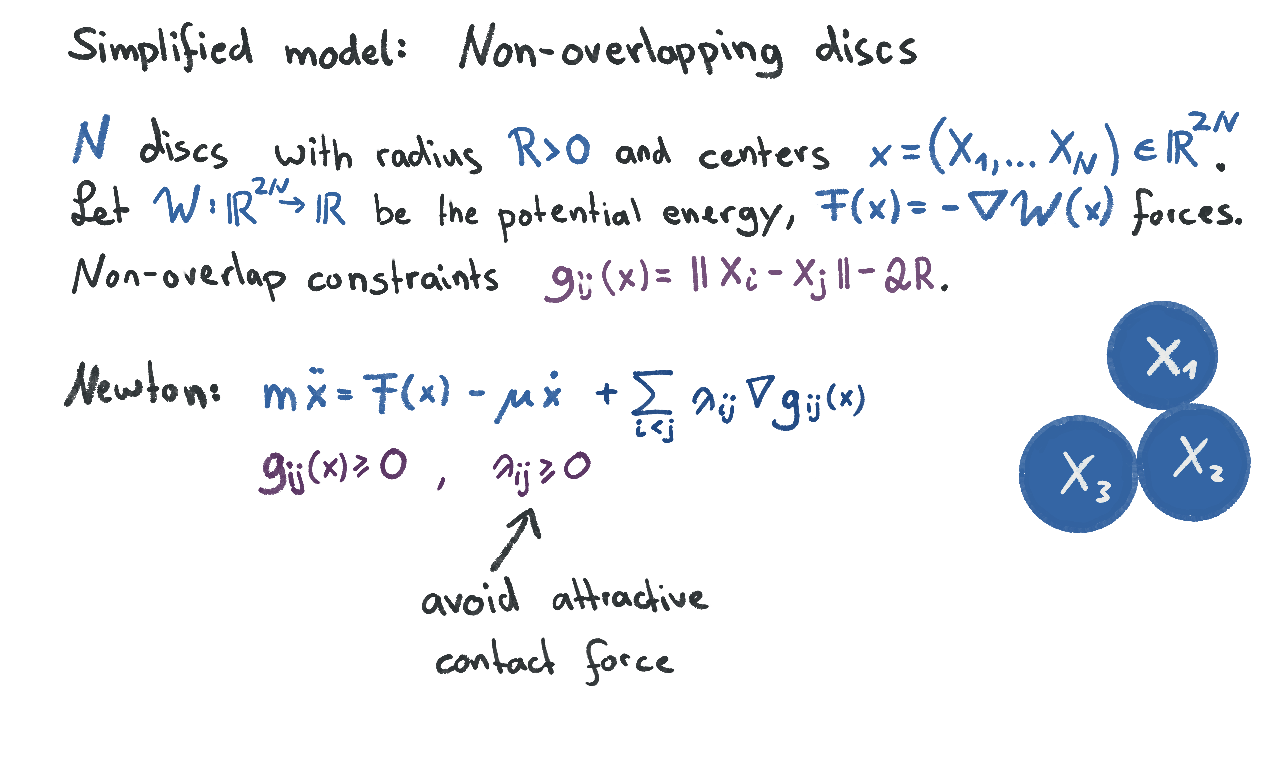 Simplified model: Non-overlapping discs
N discs with radius R>0 and centers x=(X₁,... X_N) ∈ ℝ²ᴺ.
Let W: ℝ²ᴺ → ℝ be the potential energy, F(x) = -∇W(x) forces.
Non-overlap constraints g_ij(x) = ||X_i - X_j|| - 2R.
X₁
Newton: mẍ = F(x) - μẋ + Σ_{i<j} λ_ij ∇g_ij(x)
g_ij(x) ≥ 0 , λ_ij ≥ 0
X₃ X₂
avoid attractive
contact force